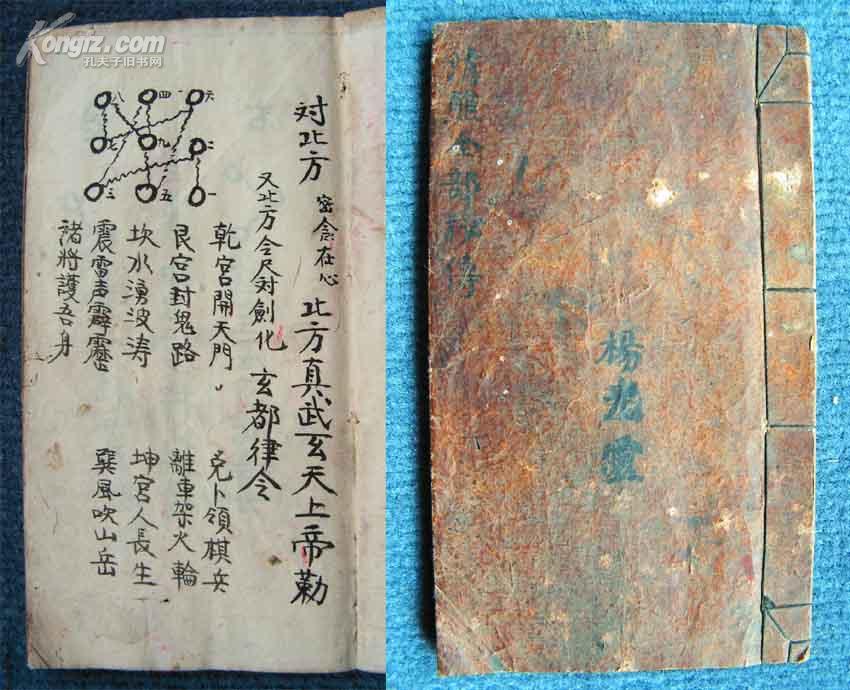 Kongfz.com
孔夫子旧书网
八 四 六
七 九 二
三 五 一
对北方 密念在心 北方真武玄天上帝勅
又北方令尺对劍化 玄都律令
乾宮開天門 兌卜領棋兵
艮宮封鬼路 離車架火輪
坎水湧波涛 坤宮人長生
震雷声霹靂 巽風吹山岳
諸將護吾身
全部秘傳
楊